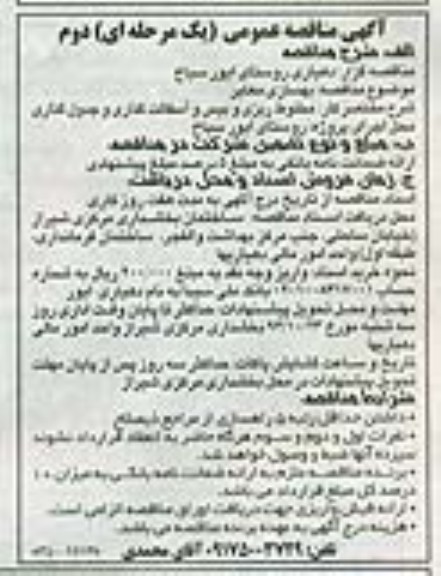 آگهی مناقصه عمومی (یک مرحله ای) دوم
الف. شرح مناقصه
مناقصه گزار: دهیاری روستای ابور سیاخ
موضوع مناقصه: بهسازی معابر
شرح مختصر کار: مخلوط ریزی و بیس و آسفالت گذاری و جدول گذاری
محل اجرای پروژه: روستای ابور سیاخ
ب. مبلغ و نوع تضمین شرکت در مناقصه
ارائه ضمانت نامه بانکی به مبلغ ۵ درصد مبلغ پیشنهادی
ج. زمان فروش اسناد و محل دریافت
اسناد مناقصه از تاریخ درج آگهی به مدت هفت روز کاری
محل دریافت اسناد مناقصه: ساختمان بخشداری مرکزی شیراز
(خیابان ساحلی، جنب مرکز بهداشت والفجر، ساختمان فرمانداری،
طبقه اول) واحد امور مالی دهیاریها
نحوه خرید اسناد: واریز وجه نقد به مبلغ ۲۰۰/۰۰۰ ریال به شماره
حساب بانک ملی سیبا به نام دهیاری ابور
مهلت و محل تحویل پیشنهادات: حداکثر تا پایان وقت اداری روز
سه شنبه مورخ ۹۳/۱۰/۲۳ بخشداری مرکزی شیراز واحد امور مالی
دهیاریها
تاریخ و ساعت گشایش پاکات: حداکثر سه روز پس از پایان مهلت
تحویل پیشنهادات در محل بخشداری مرکزی شیراز
شرایط مناقصه
• داشتن حداقل رتبه ۵ راهسازی از مراجع ذیصلاح
• نفرات اول و دوم و سوم هرگاه حاضر به انعقاد قرارداد نشوند
سپرده آنها ضبط و وصول خواهد شد.
• برنده مناقصه ملزم به ارائه ضمانت نامه بانکی به میزان ۱۰
درصد کل مبلغ قرارداد می باشد.
• ارائه فیش واریزی جهت دریافت اوراق مناقصه الزامی است.
• هزینه درج آگهی به عهده برنده مناقصه می باشد.
تلفن: ۰۹۱۷۵۰۰۳۷۳۹ آقای محمدی